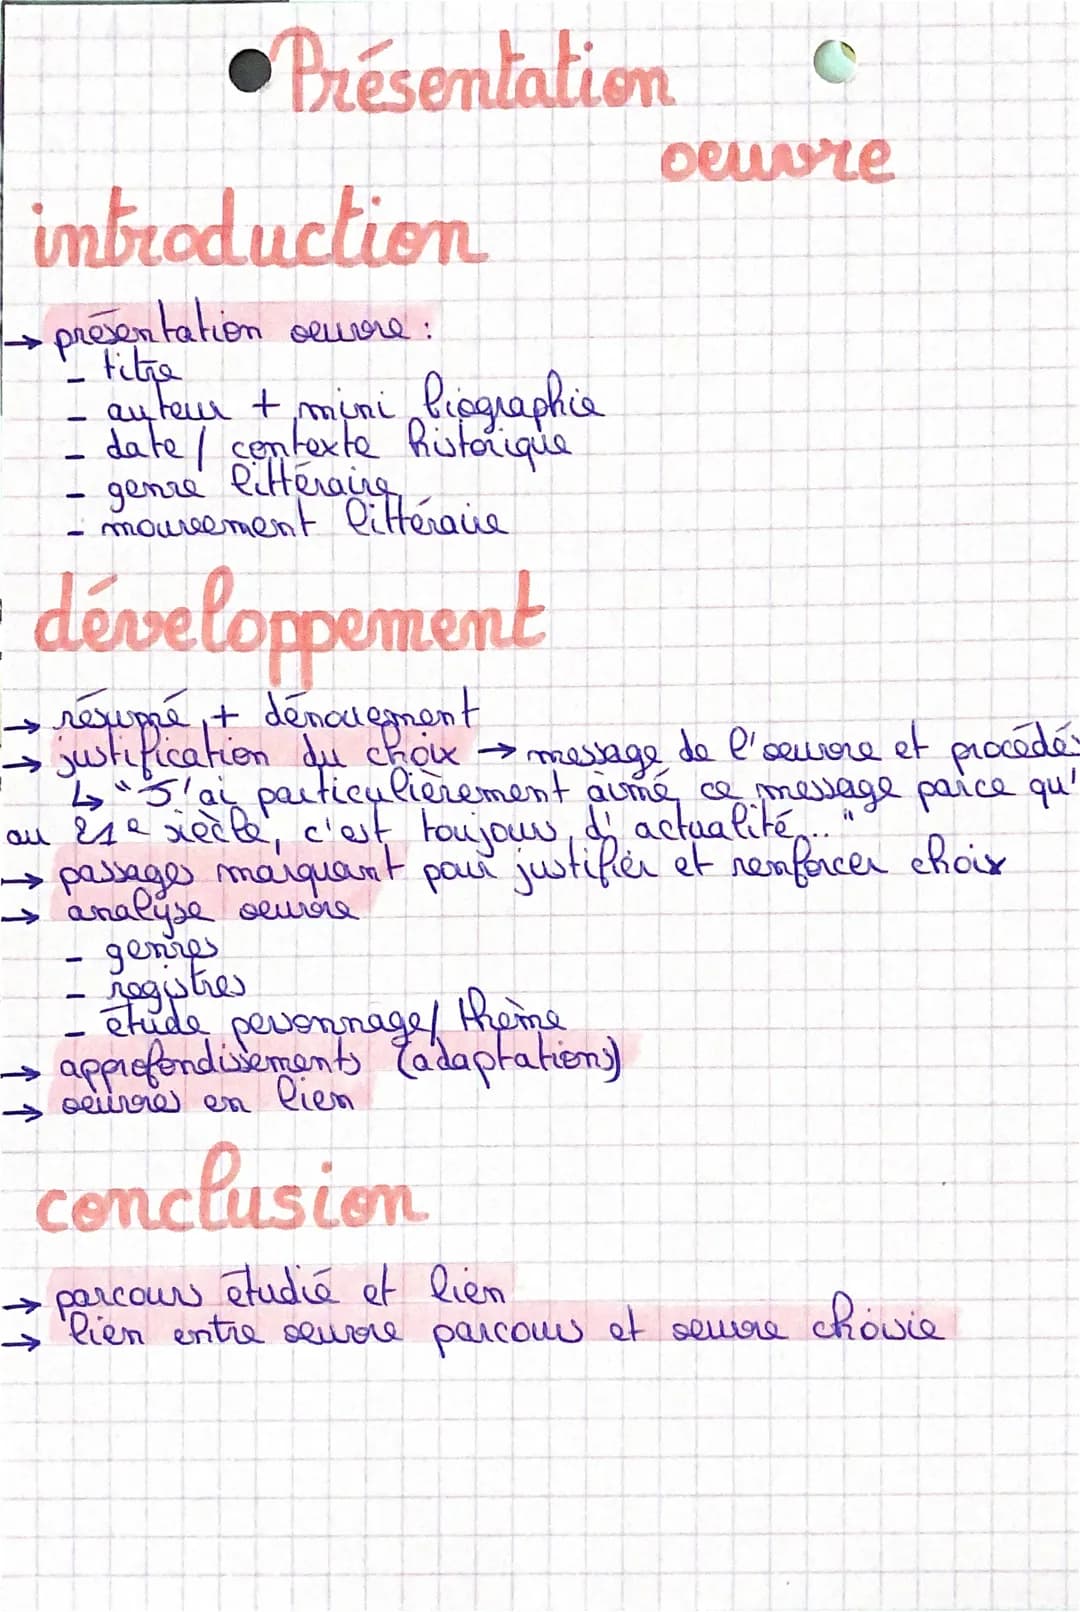 Présentation
oeuvre
introduction
→ présentation oeuvre :
- titre
- auteur + mini biographie
- date / contexte historique
- genre littéraire
- mouvement littéraire
développement
→ résumé + dénouement
→ justification du choix → message de l'oeuvre et procédés
↳ "J'ai particulièrement aimé ce message parce qu'
au 21e siècle, c'est toujours d'actualité..."
→ passages marquant pour justifier et renforcer choix
→ analyse oeuvre
- genres
- registres
- étude personnage / thème
→ approfondissements (adaptations)
→ oeuvres en lien
conclusion
→ parcours étudié et lien
→ lien entre oeuvre parcours et oeuvre choisie